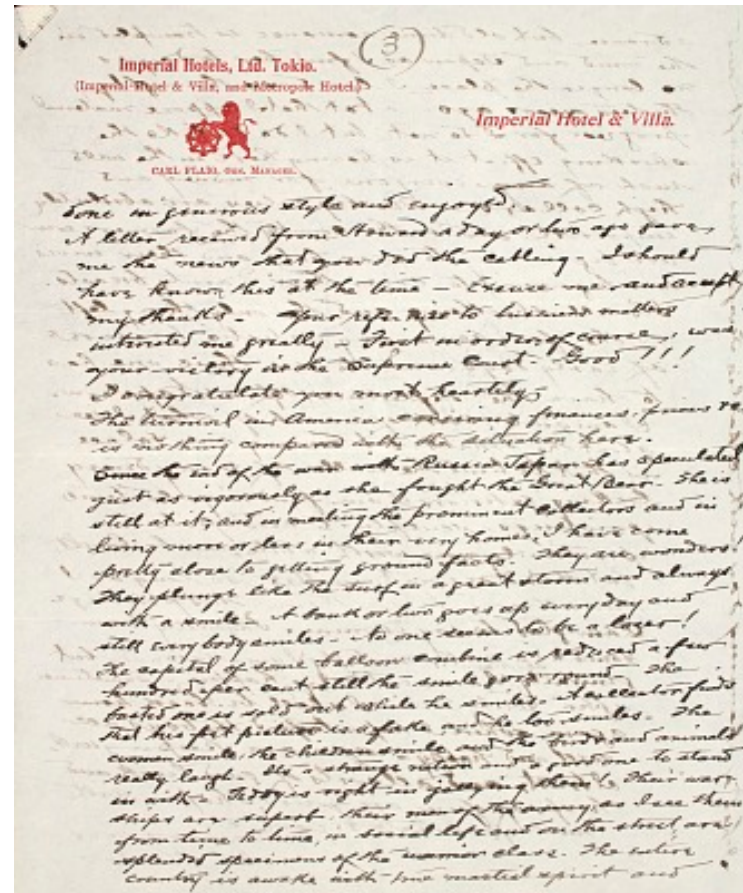 3
Imperial Hotels, Ltd. Tokio.
(Imperial Hotel & Villa, and Metropole Hotel.)
Imperial Hotel & Villa.
CARL FLAIG, GEN. MANAGER.
done in generous style and enjoyed.
A letter received from Howard a day or two ago gave
me the news that you did the calling - I should
have known this at the time - Excuse me and accept
my thanks - Your reference to business matters
interested me greatly - First in order, of course, was
your victory in the Supreme Court - Good!!!
I congratulate you most heartily;
The turmoil in America concerning finances
is nothing compared with the situation here.
Since the end of the war with Russia Japan has speculated
just as vigorously as she fought the Great Bear. She is
still at it, and in meeting the prominent collectors and in
living more or less in their very homes, I have come
pretty close to getting ground facts. They are wonders!
They plunge like the surf in a great storm and always
with a smile - A bank or two goes up every day and
still everybody smiles - No one seems to be a loser!
The capital of some balloon combine is reduced a few
hundred per cent still the smile goes round - The
busted one is sold out while he smiles. A collector finds
that his pet picture is a fake and he too smiles. The
women smile, the children smile and the birds and animals
really laugh - It's a strange nation and a good one to stand
in with - Teddy is right in jollying them! Their war
ships are superb their men of the army, as I see them
from time to time, in social life and on the street are
splendid specimens of the warrior class. The entire
country is awake with true martial spirit and